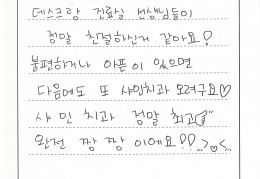 데스크랑 진료실 선생님들이
정말 친절하신거 같아요!
불편하거나 아픈이 있으면
다음에도 또 샤인치과 오려구요♡
샤인치과 정말 최고👍
완전 짱짱이에요!! ..>◡<..